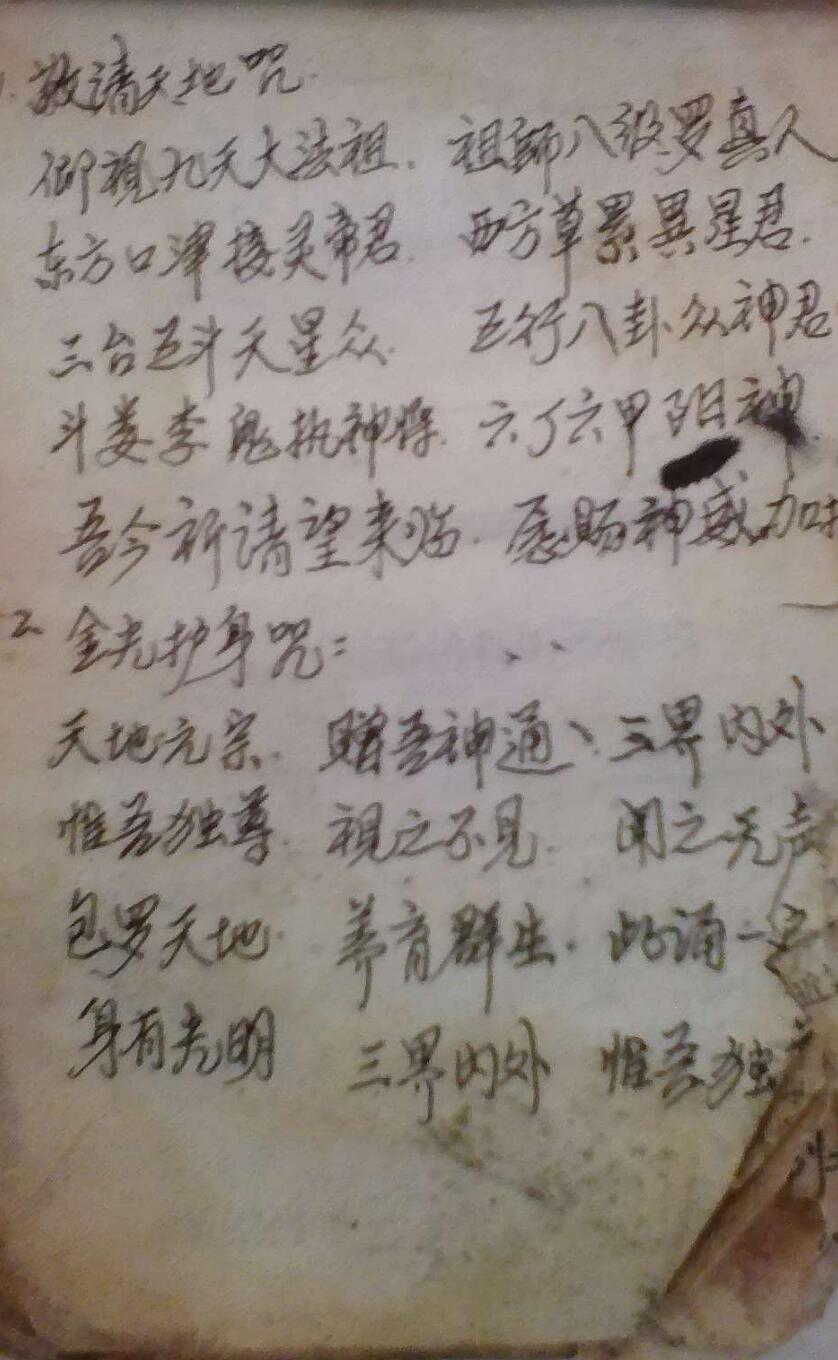 1. 敬请天地咒.
仰视九天大法祖. 祖師八级罗真人
东方口津接灵帝君. 西方草累異星君.
三台五斗天星众. 五行八卦众神君
斗娄李鬼执神将. 六丁六甲阳神
吾今祈请望来临. 愿赐神威力
2. 金光护身咒:
天地元宗. 赠吾神通、三界内外
惟吾独尊. 视之不见. 闻之无声
包罗天地. 养育群生. 此诵一
身有光明 三界内外 惟吾独